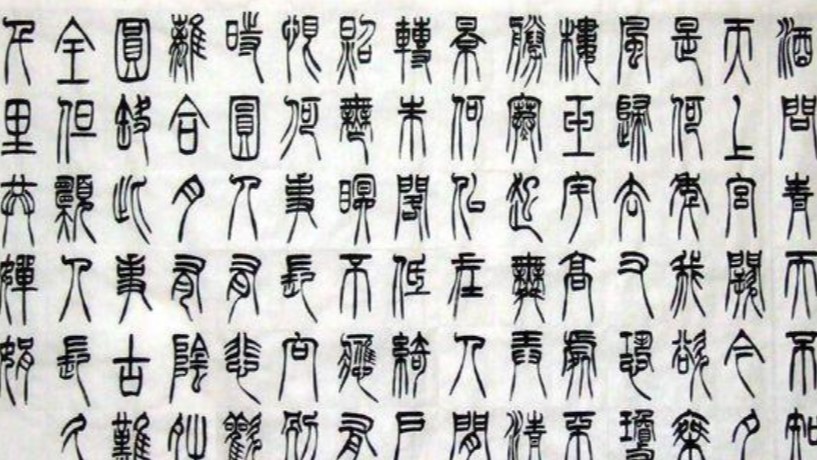 酒問青天不知
天上宮闕今夕
是何年我欲乘
風歸去又恐瓊
樓玉宇高處不
勝寒起舞弄清
景何似在人間
轉朱閣低綺戶
照無眠不應有
恨何事長向別
時圓人有悲歡
離合月有陰晴
圓缺此事古難
全但願人長久
千里共嬋娟